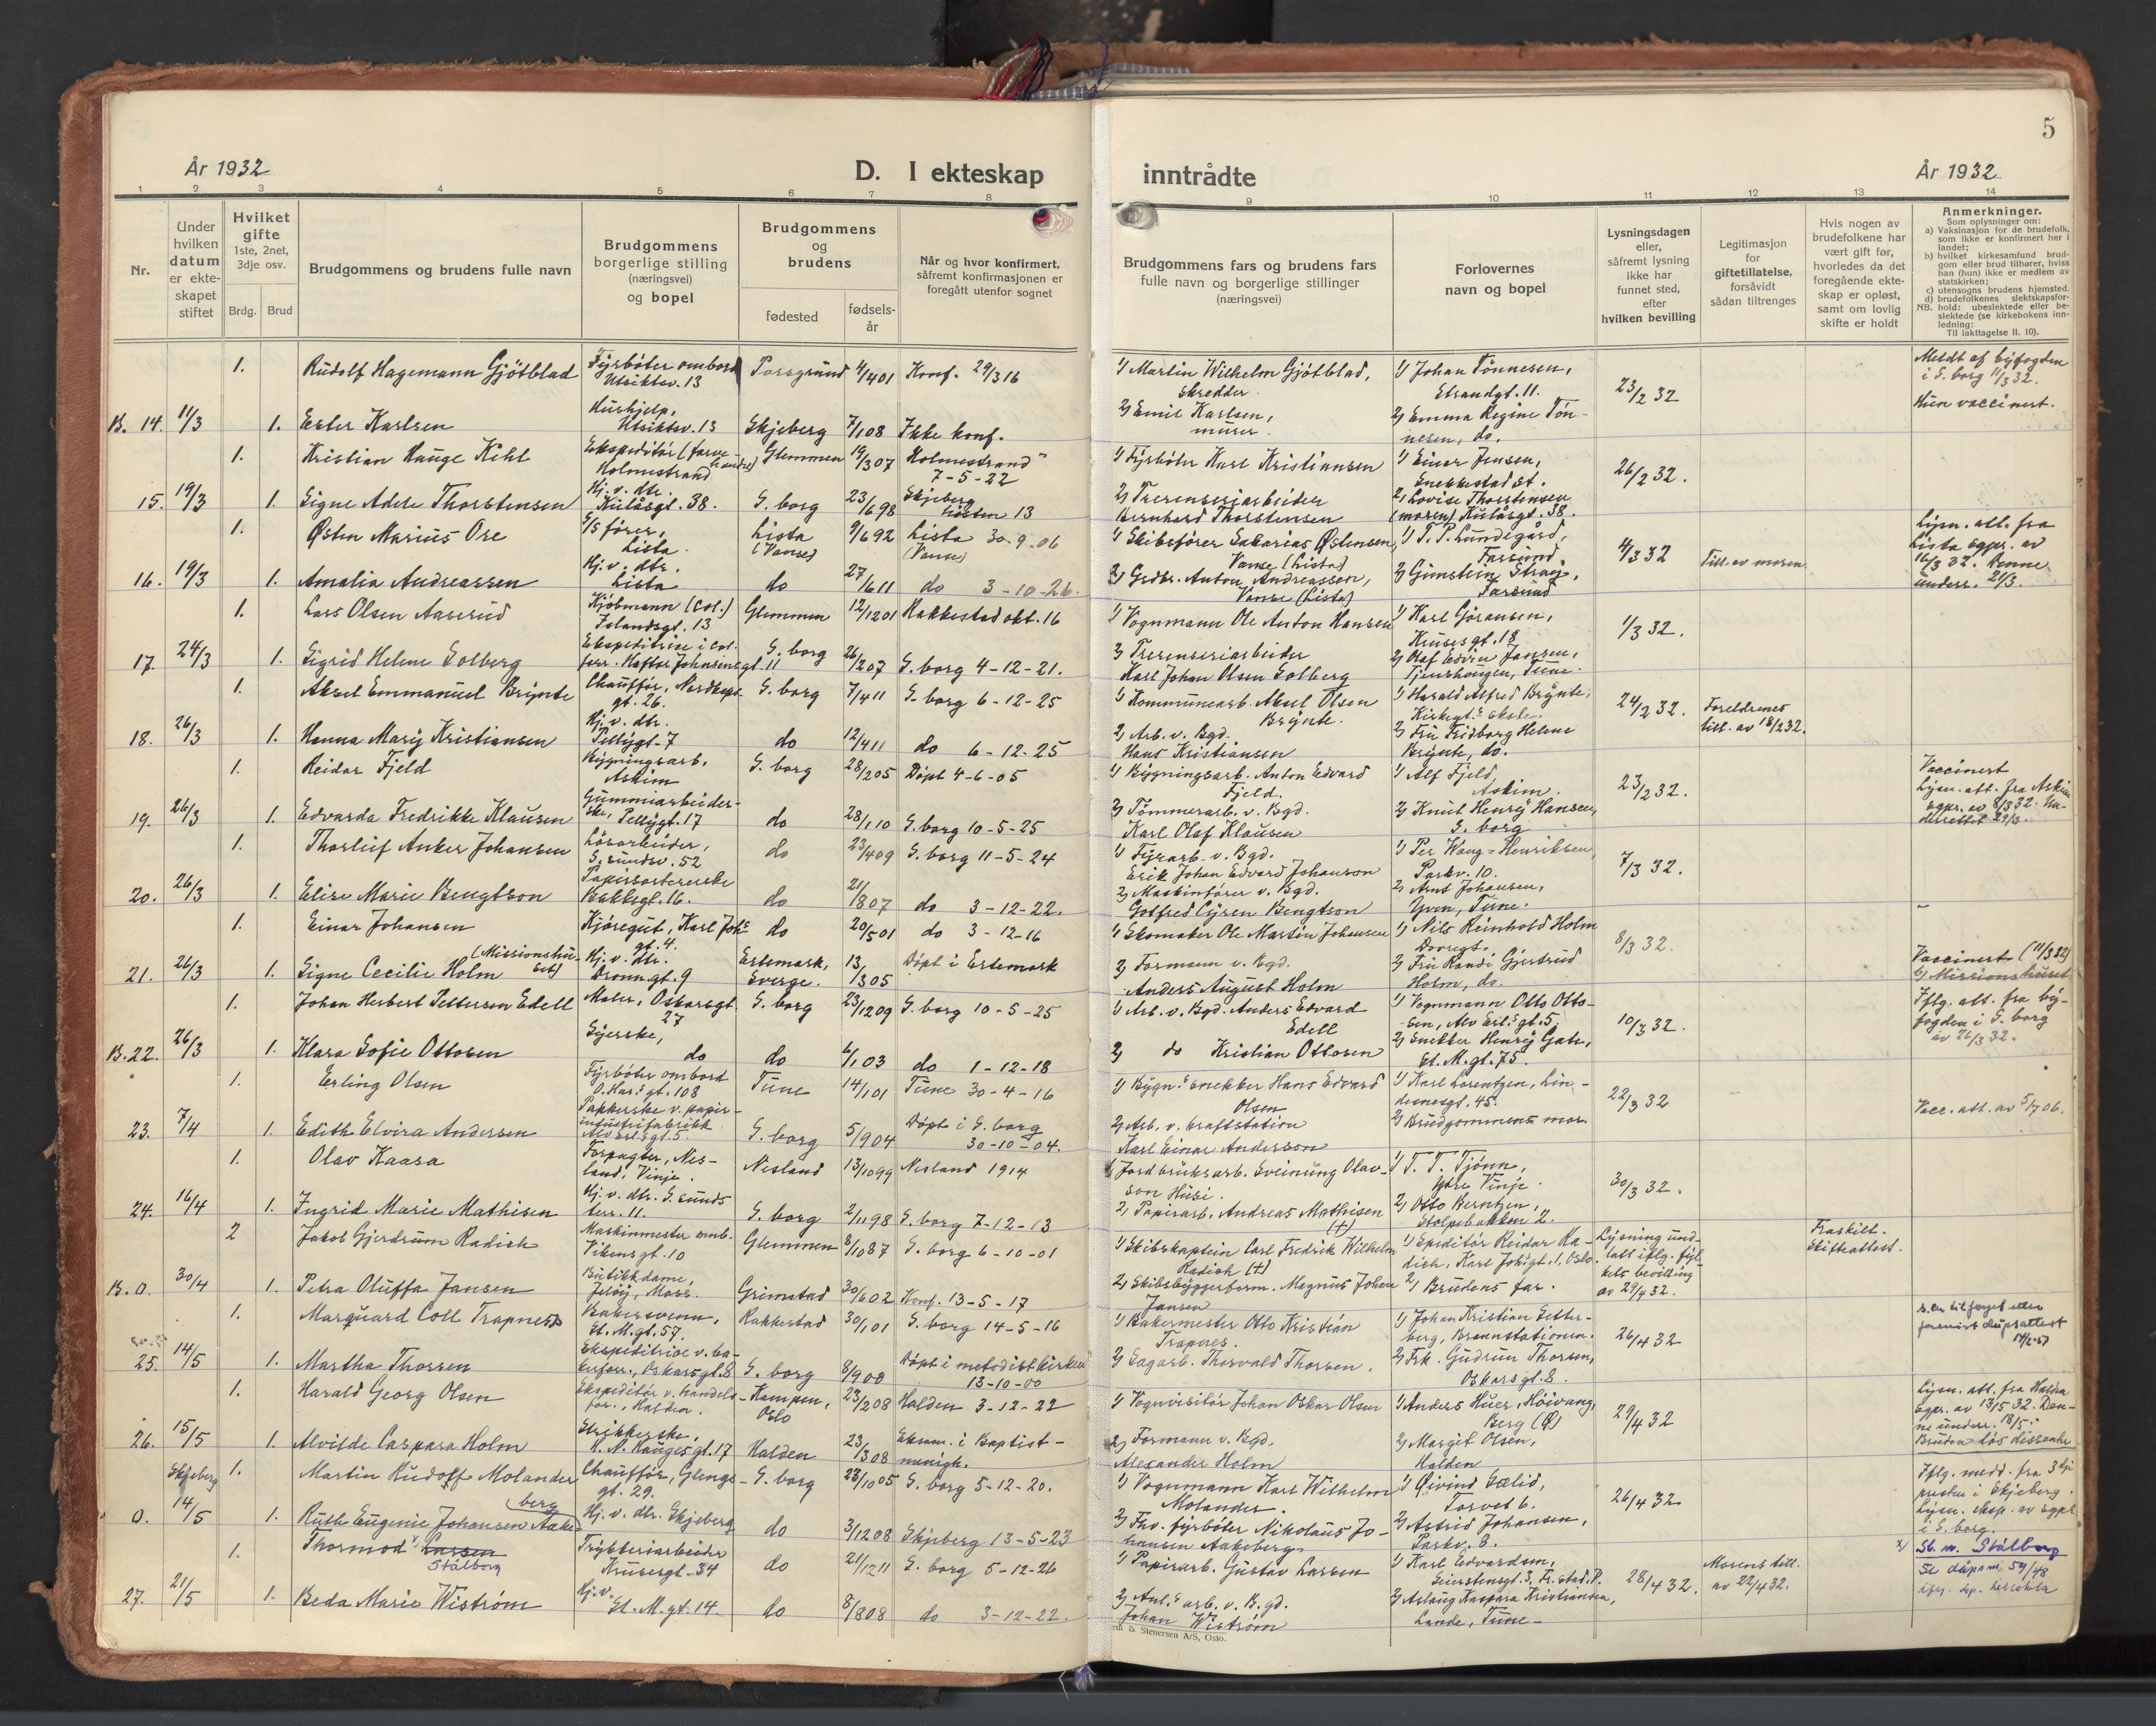 5
År 1932
D. I ekteskap
inntrådte
År 1932
1 2 3 4 5 6 7 8 9 10 11 12 13 14
Nr.
Under hvilken datum er ekteskapet stiftet
Hvilket gifte
1ste, 2net, 3dje osv.
Brdg. Brud
Brudgommens og brudens fulle navn
Brudgommens borgerlige stilling (næringsvei) og bopel
Brudgommens og brudens
fødested
fødselsår
Når og hvor konfirmert, såfremt konfirmasjonen er foregått utenfor sognet
Brudgommens fars og brudens fars fulle navn og borgerlige stillinger (næringsvei)
Forlovernes navn og bopel
Lysningsdagen eller, såfremt lysning ikke har funnet sted, efter hvilken bevilling
Legitimasjon for giftetillatelse, forsåvidt sådan tiltrenges
Hvis nogen av brudefolkene har vært gift før, hvorledes da det foregående ekteskap er opløst, samt om lovlig skifte er holdt
Anmerkninger.
Som oplysninger om:
a) Vaksinasjon for de brudefolk, som ikke er konfirmert her i landet;
b) hvilket kirkesamfund brudgom eller brud tilhører, hviss han (hun) ikke er medlem av statskirken;
c) utensogns brudens hjemsted.
d) brudefolkenes slektskapsforhold: ubeslektede eller beslektede (se kirkebokens innledning:
NB. Til iakttagelse II. 10).
1. Rudolf Hagemann Gjötblad Fyrböter ombord Utsiktsv. 13 Porsgrund 4/401 Konf. 29/316 1) Martin Wilhelm Gjötblad, Skredder 1) Johan Tönnesen, Strandgt. 11. 23/2 32 Meldt af byfogden i S. borg 11/3 32.
B. 14. 11/3 1. Ester Karlsen Hushjelp, Utsiktsv. 13 Skjeberg 7/108 Ikke konf. 2) Emil Karlsen, murer. 2) Emma Regine Tönnesen, do. Hun vaccinert.
1. Kristian Hauge Kihl Ekspeditör (farvehandel) Holmestrand Glemmen 19/307 Holmestrand 7-5-22 1) Fyrböter Karl Kristiansen 1) Einar Jensen, Snekkestadst. 26/2 32.
15. 19/3 1. Signe Adele Thorstensen Hj. v. dtr. Kulåsgt. 38. S. borg 23/698 Skjeberg hösten 13 2) Træsenseriarbeider Bernhard Thorstensen 2) Lovise Thorstensen (moren) Kulåsgt. 38.
1. Östen Marius Ore S/S förer, Lista. Lista (Vanse) 9/692 Lista 30-9-06 (Vanse) 1) Skibsförer Sakarias Östensen, Vanse (Lista) 1) T. P. Lundegård, Farsund 4/3 32 Till. av moren Lysn. att. fra Lista sgpr. av 16/3 32. Denne underr. 21/3.
16. 19/3 1. Amalia Andreassen Hj. v. dtr. Lista do 27/611 do 3-10-26. 2) Grdbr. Anton Andreassen, Vanse (Lista) 2) Gunstein Stray, Farsund
1. Lars Olsen Aaserud Kjöbmann (col.) Islandsgt. 13 Glemmen 12/1201 Rakkestad okt. 16 1) Vognmann Ole Anton Hansen 1) Karl Göransen, Krusesgt. 18 1/3 32.
17. 24/3 1. Sigrid Helene Solberg Ekspeditrise i col. forr. Haftor Johnsensgt. 11 S. borg 26/207 S. borg 4-12-21. 2) Træsenseriarbeider Karl Johan Olsen Solberg 2) Olaf Edvin Jansen, Tjenshaugen, Tune.
1. Aksel Emmanuel Brynte Chauffør, Nordkapsgt. 26. S. borg 7/411 S. borg 6-12-25 1) Kommunearb. Aksel Olsen Brynte. 1) Harald Alfred Brynte, Kirkegt.s skole. 24/2 32. Foreldrenes till. av 18/2 32.
18. 26/3 1. Hanna Mary Kristiansen Hj. v. dtr. Pellygt. 7 do 12/411 do 6-12-25 2) Arb. v. Bgd. Hans Kristiansen 2) Fru Fridborg Helene Brynte, do.
1. Reidar Fjeld Bygningsarb. Askim S. borg 28/205 Döpt 4-6-05 1) Bygningsarb. Anton Edvard Fjeld. 1) Alf Fjeld, Askim. 23/2 32. Vaccinert Lysn. att. fra Askim sgpr. av 8/3 32. Underrettet 29/3.
19. 26/3 1. Edvarda Fredrikke Klausen Gummiarbeiderske, Pellygt. 17 do 28/110 S. borg 10-5-25 2) Tömmerarb. v. Bgd. Karl Olaf Klausen 2) Knut Henry Hansen, S. borg
1. Thorleif Anker Johansen Lösarbeider, S. sundsv. 52 do 23/409 S. borg 11-5-24 1) Fyrarb. v. Bgd. Erik Johan Edvard Johanson 1) Per Wang-Henriksen, Parkv. 10. 7/3 32.
20. 26/3 1. Elise Marie Bengtson Papirsorterske Bakkegt. 16. do 21/807 do 3-12-22. 2) Maskinförer v. Bgd. Gotfred Cyren Bengtson 2) Arnt Johansen, Yven, Tune.
1. Einar Johansen Kjöregut, Karl Joh.s gt. 4. do 20/501 do 3-12-16 1) Skomaker Ole Martin Johansen 1) Nils Reinhold Holm Dovregt. 8/3 32.
21. 26/3 1. Signe Cecilie Holm (Missionshuset) Hj. v. dtr. Dronn.gt. 9 Ertemark, Sverge. 13/1305 Döpt i Ertemark 2) Formann v. Bgd. Anders August Holm 2) Fru Randi Gjertrud Holm, do. Vaccinert (11/3 82) 2) Missionshuset
1. Johan Herbert Pettersen Edell Maler, Oskarsgt. 27 S. borg 23/1209 S. borg 10-5-25 1) Arb. v. Bgd. Anders Edvard Edell 1) Vognmann Otto Ottosen, Alv Erl.s gt. 5. 10/3 32. Iflg. att. fra byfogden i S. borg av 26/3 32.
B. 22. 26/3 1. Klara Sofie Ottosen Syerske, do do 6/103 do 1-12-18 2) do Kristian Ottosen 2) Snekker Henry Gate, St. M. gt. 75
1. Erling Olsen Fyrböter ombord O. Har.s gt. 108 Tune 14/101 Tune 30-4-16 1) Bygn.s snekker Hans Edvard Olsen 1) Karl Lorentzen, Lindesnesgt. 45. 22/3 32
23. 7/4 1. Edith Elvira Andersen Pakkerske v. papirindustrifabrikk Alv Erl.s gt. 5. S. borg 5/904 Döpt i S. borg 30-10-04. 2) Arb. v. kraftstation Karl Einar Anderson 2) Brudgommens mor Vacc. att. av 5/7 06.
1. Olav Kaasa Forpagter, Nesland, Vinje. Nesland 13/1099 Nesland 1914 1) Jordbruksarb. Sveinung Olavson Husi. 1) T. T. Tjönn, Ytre Vinje. 30/3 32.
24. 16/4 1. Ingrid Marie Mathisen Hj. v. dtr. S. sunds terr. 11. S. borg 2/1198 S. borg 7-12-13 2) Papirarb. Andreas Mathisen (+) 2) Otto Berntzen, Stolpebakken 2.
2 Jakob Gjerdrum Radich Maskinmester omb. Vikensgt. 10 Glemmen 8/1087 S. borg 6-10-01 1) Skibskaptein Carl Fredrik Wilhelm Radich (+) 1) Speditör Reidar Radich, Karl Joh.gt. 1, Oslo. Lysning undlatt iflg. fylkets bevilling av 29/4 32. Fraskilt. Skifteattest.
B. 0. 30/4 1. Petra Oluffa Jansen Butikkdame, Jelöy, Moss. Grimstad 30/602 Konf. 13-5-17 2) Skibsbyggerform. Magnus Johan Jansen 2) Brudens far.
1. Marquard Coll Trapness Bakersvenn, St. M. gt. 57. Rakkestad 30/101 S. borg 14-5-16 1) Bakermester Otto Kristian Trapnes. 1) Johan Kristian Setterberg, Brannstationen. 26/4 32 s.en tilföyet etter forevist dåpsattest
25. 14/5 1. Martha Thorsen Ekspeditrise v. bakerforr., Oskarsgt. 8 S. borg 8/900 Döpt i metodistkirken 13-10-00 2) Sagarb. Thorvald Thorsen. 2) Frk. Gudrun Thorsen, Oskarsgt. 8.
1. Harald Georg Olsen Ekspeditör v. handelsfor., Halden. Kampen, Oslo 23/208 Halden 3-12-22 1) Vognvisitör Johan Oskar Olsen 1) Anders Huer, Höivang, Berg 29/4 32 Lysn. att. fra Halden sgpr. av 13/5 32. Denne underr. 18/5. Bruden lös dissenter
26. 15/5 1. Alvilde Caspara Holm Strikkerske, H. N. Haugesgt. 17 Halden 23/308 Eksam. i Baptistmenigh. 2) Formann v. Bgd. Alexander Holm 2) Margit Olsen, Halden
Skjeberg 1. Martin Rudolf Molander Chauffør, Glengsgt. 29. S. borg 23/1005 S. borg 5-12-20. 1) Vognmann Karl Wilhelm Molander. 1) Öivind Sælid, Torvet 6. 26/4 32 Iflg. medd. fra 3dje presten i Skjeberg. Lysn. eksp. av sgpr. i S. borg.
0. 14/5 1. Ruth Eugenie Johansen Aakeberg Hj. v. dtr. Skjeberg do 3/1208 Skjeberg 13-5-23 2) Fhv. fyrböter Nikolaus Johansen Aakeberg. 2) Astrid Johansen, Parkv. 8.
1. Thormod Larsen Stålborg Trykkeriarbeider Krusesgt. 34 do 21/1211 S. borg 5-12-26 1) Papirarb. Gustav Larsen 1) Karl Edvardsen, Seierstensgt. 3, Fr.stad. 28/4 32. Morens till. av 22/4 32. Sl. n. Stålborg Se dåpsnr. 59/48
27. 21/5 1. Beda Marie Wiström Hj. v. St. M. gt. 14. do 8/808 do 3-12-22. 2) Anl.s arb. v. B.gd. Johan Wiström 2) Aslaug Kaspara Kristiansen, Lande, Tune
& Stenersen A/S, Oslo.